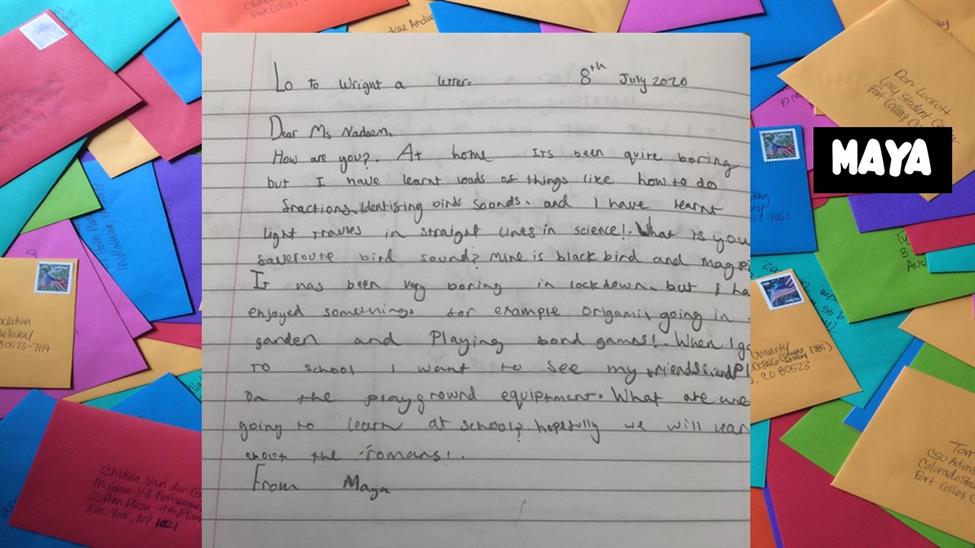 Lo To Wright a letter. 8th July 2020
Dear Ms Nadeem,
How are you?. At home Its been quite boring
but I have learnt loads of things like how to do
fractions, Identifing birds sounds. and I have learnt
light travles in straight lines in science!. What is you
faveroute bird sound? Mine is blackbird and magpi
It has been very boring in lockdown. but I ha
enjoyed somethings for example origami, going in
garden and Playing bord games!. When I go
to school I want to see my friends and Pl
on the playground equiptment. What are we
going to learn at school? hopefully we will lear
about the romans!.
From Maya
MAYA
Chelsea Van der G
New York, NY
Fort Collins
CO 80523
80523-7114